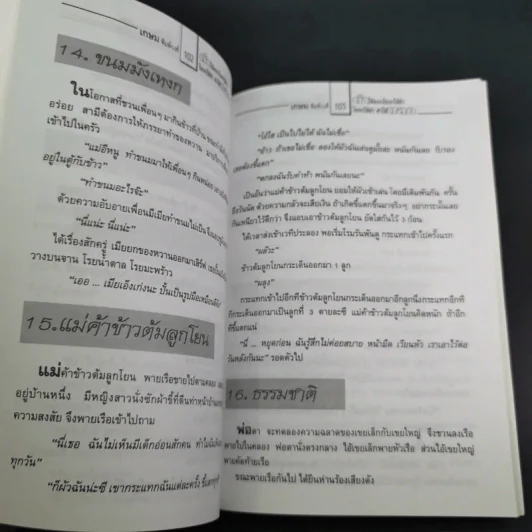 เกษม
102
14. ขนมมังเทงก
ในโอกาสที่ชวนเพื่อนๆ มากินข้าวที่บ้าน
อร่อย สามีต้องการให้ภรรยาทำของหวาน
เข้าไปในครัว
"แม่อีหนู ทำขนมมาให้เพื่อนๆ กินหน่อย
อยู่ในตู้กับข้าว"
"ทำขนมอะไรจ๊ะ"
ด้วยความอับอายเพื่อนมีเมียทำขนมไม่เป็น
"นี่แน่ะ นี่แน่ะ"
ได้เรื่องสักครู่ เมียยกของหวานออกมาเสิร์ฟ
วางบนจาน โรยน้ำตาล โรยมะพร้าว
"เออ ... เมียเอ็งเก่งนะ ปั้นเป็นรูปมือเหมือน
15.แม่ค้าข้าวต้มลูกโยน
แม่ค้าข้าวต้มลูกโยน พายเรือขายไปตามคลอง
อยู่บ้านหนึ่ง มีหญิงสาวนั่งซักผ้าขี้ที่ตีนท่าหน้าบ้าน
ความสงสัย จึงพายเรือเข้าไปถาม
"นี่เธอ ฉันไม่เห็นมีเด็กอ่อนสักคน ทำไม
ทุกวัน"
"ก็ผัวฉันน่ะซี เขากระแทกฉันแต่ละครั้ง
เกษม
103
"โอ้โฮ เป็นไปไม่ได้ ฉันไม่เชื่อ"
"อ้าว ถ้าเธอไม่เชื่อ ลองให้ผัวฉันเล่นดูมั้ยล่ะ พนันกันเลย
"ตกลงฉันรับคำท้า พนันกันเลยนะ"
เป็นอันว่าแม่ค้าข้าวต้มลูกโยน ยอมให้ผัวเขาเล่น โดยมีเดิมพันกัน ครั้น
ถึงวันนัด ด้วยความกลัวจะเสียเงิน ถ้าเกิดขี้แตกขึ้นมาจริงๆ
เหนียวไว้ดีกว่า จึงแอบเอาข้าวต้มลูกโยน ยัดใส่ก้นไว้ 3 ก้อน
ได้เวลาส่งเข้าเวทีประลอง พอเริ่มโรมรันพันตู กระแทกเข้าไปครั้งแรก
"แผัวะ"
ข้าวต้มลูกโยนกระเด็นออกมา 1 ลูก
"ผลุง"
กระแทกเข้าไปอีกทีข้าวต้มลูกโยนกระเด็นออกมาอีกลูกนึงกระแทกอีกที
ก็กระเด็นออกมาเป็นลูกที่ 3 คายละซี แม่ค้าข้าวต้มลูกโยนคิดหนัก ถ้าอีก
ทีขี้แตกแน่
"นี่ ... หยุดก่อน ฉันรู้สึกไม่ค่อยสบาย หน้ามืด เวียนหัว เราเอาไว้ต่อ
วันหลังกันนะ" รอดตัวไป
16. ธรรมชาติ
พ่อตา จะทดลองความฉลาดของเขยเล็กกับเขยใหญ่ จึงชวนลงเรือ
พายไปในคลอง พ่อตานั่งตรงกลาง ให้เขยเล็กพายหัวเรือ ส่วนไอ้เขยใหญ่
พายคัดท้ายเรือ
ขณะพายเรือกันไป ได้ยินห่านร้องเสียงดัง